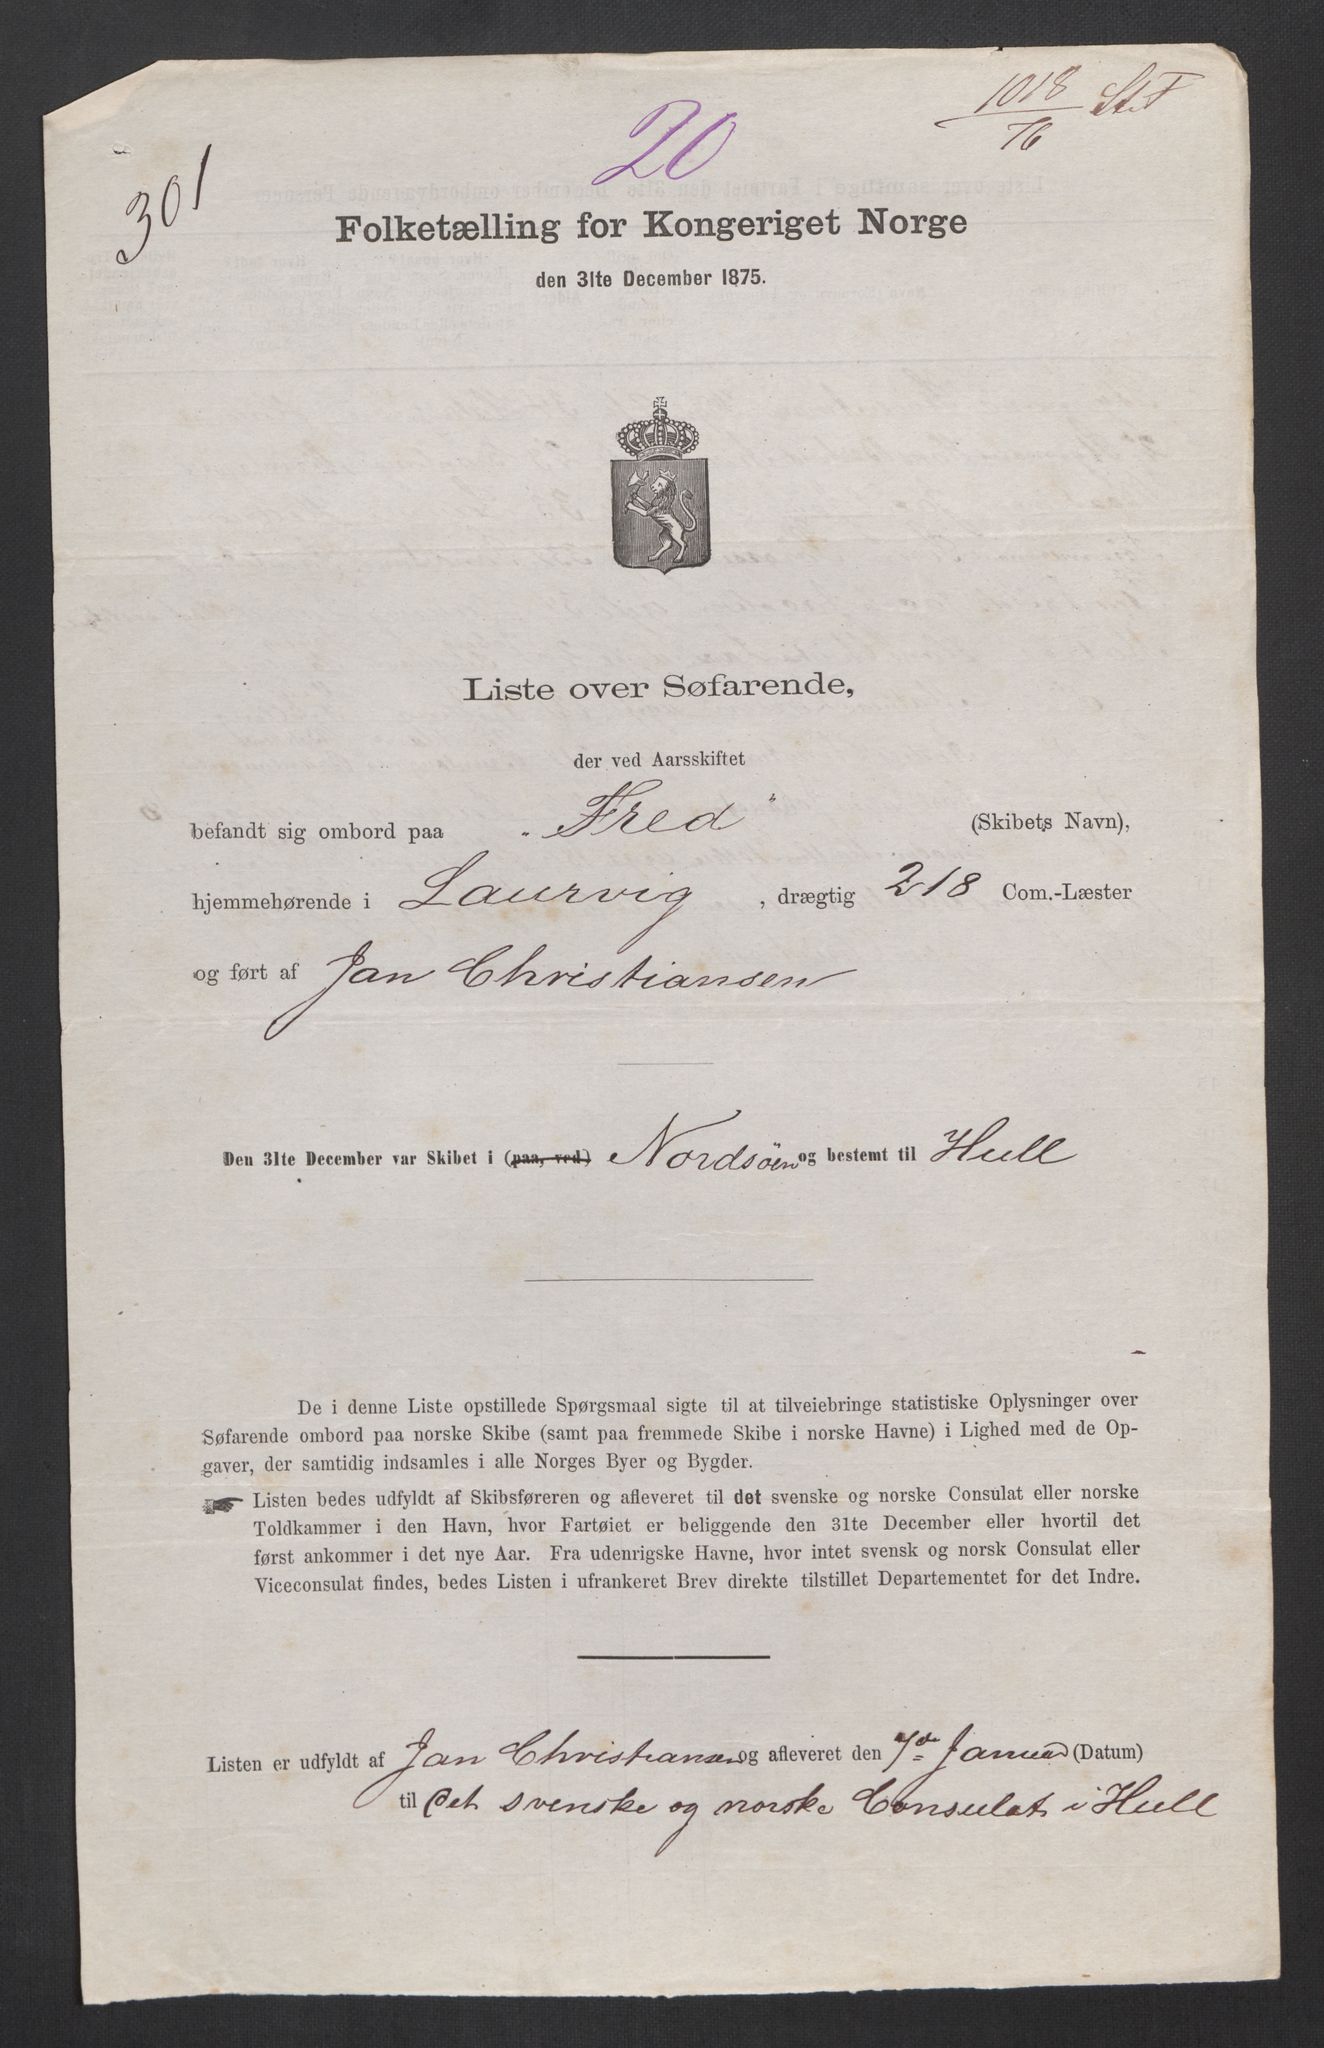 1018
76 St. F
20
301
Folketælling for Kongeriget Norge
den 31te December 1875.
Liste over Søfarende,
der ved Aarsskiftet
befandt sig ombord paa "Fred" (Skibets Navn),
hjemmehørende i Laurvig, drægtig 218 Com.-Læster
og ført af Jan Christiansen
Den 31te December var Skibet i (paa, ved) Nordsöen og bestemt til Hull
De i denne Liste opstillede Spørgsmaal sigte til at tilveiebringe statistiske Oplysninger over
Søfarende ombord paa norske Skibe (samt paa fremmede Skibe i norske Havne) i Lighed med de Op-
gaver, der samtidig indsamles i alle Norges Byer og Bygder.
☛ Listen bedes udfyldt af Skibsføreren og afleveret til det svenske og norske Consulat eller norske
Toldkammer i den Havn, hvor Fartøiet er beliggende den 31te December eller hvortil det
først ankommer i det nye Aar. Fra udenrigske Havne, hvor intet svensk og norsk Consulat eller
Viceconsulat findes, bedes Listen i ufrankeret Brev direkte tilstillet Departementet for det Indre.
Listen er udfyldt af Jan Christiansen og afleveret den 7de Januar (Datum)
til Det svenske og norske Consulat i Hull